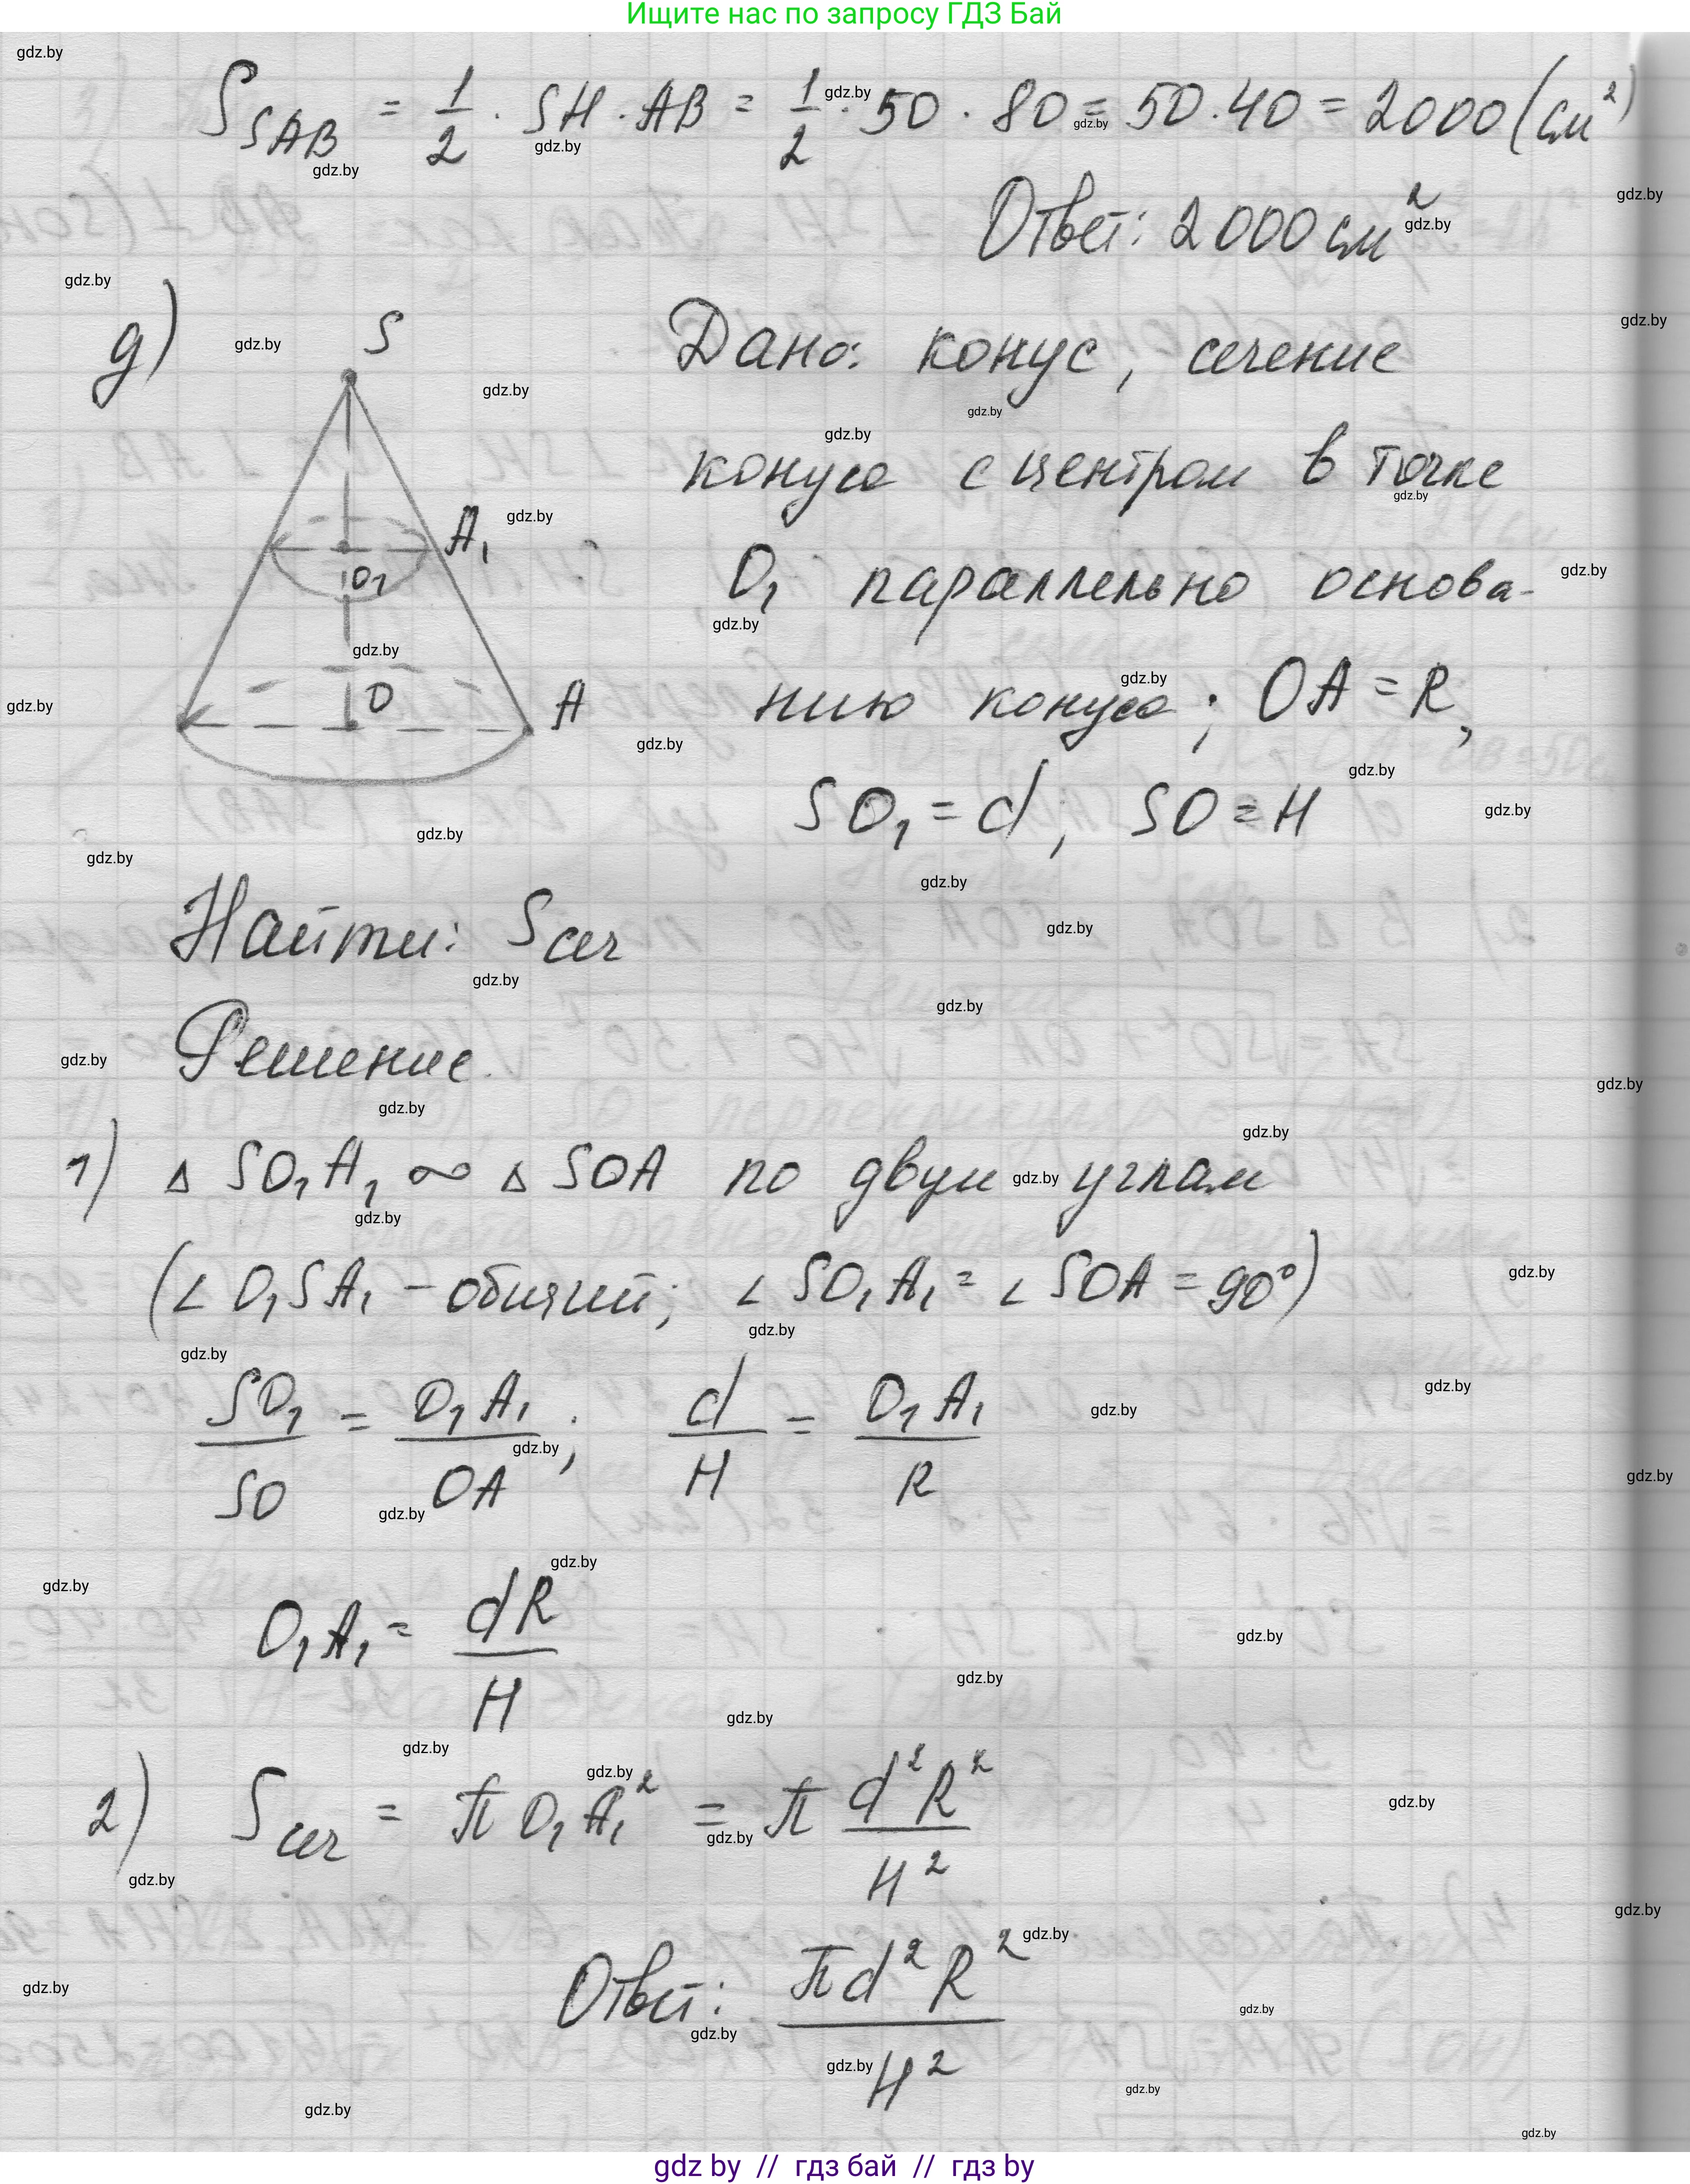 Ищите нас по запросу ГДЗ Бай
S_SAB = 1/2 · SH · AB = 1/2 · 50 · 80 = 50 · 40 = 2000 (см²)
Ответ: 2000 см²
д)
S
A₁
O₁
O
A
Дано: конус, сечение
конуса с центром в точке
O₁ параллельно основа-
нию конуса; OA = R,
SO₁ = d; SO = H
Найти: S сеч
Решение.
1) Δ SO₁A₁ ∞ Δ SOA по двум углам
(∠ O₁SA₁ – общий; ∠ SO₁A₁ = ∠ SOA = 90°)
SO₁/SO = O₁A₁/OA; d/H = O₁A₁/R
O₁A₁ = dR/H
2) S сеч = π O₁A₁² = π d²R²/H²
Ответ: πd²R²/H²
gdz by // гдз бай // гдз by